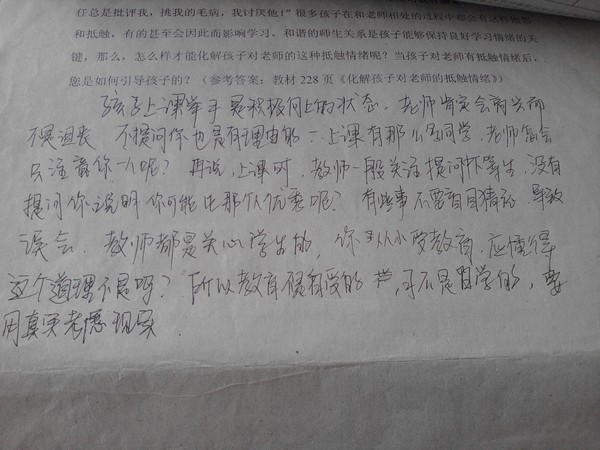 任总是批评我，挑我的毛病，我讨厌他!”很多孩子在和老师相处的过程中都会有这种抱怨
和抵触，有的甚至会因此而影响学习。和谐的师生关系是孩子能够保持良好学习情绪的关
键，那么，怎么样才能化解孩子对老师的这种抵触情绪呢？当孩子对老师有抵触情绪后，
您是如何引导孩子的？（参考答案：教材 228 页《化解孩子对老师的抵触情绪》）
孩子上课举手是积极向上的状态，老师肯定会高兴而
不是沮丧 不提问你也是有理由的 一上课有那么多同学，老师怎会
只注意你一人呢？ 再说，上课时，教师一般关注提问中等生，没有
提问你说明你可能比那个优秀呢？ 有些事不要盲目猜 导致
误会. 教师都是关心学生的，你从小受教育，应懂得
这个道理不是吗？所以教育 的 可不是自学的，要
用真实 现实